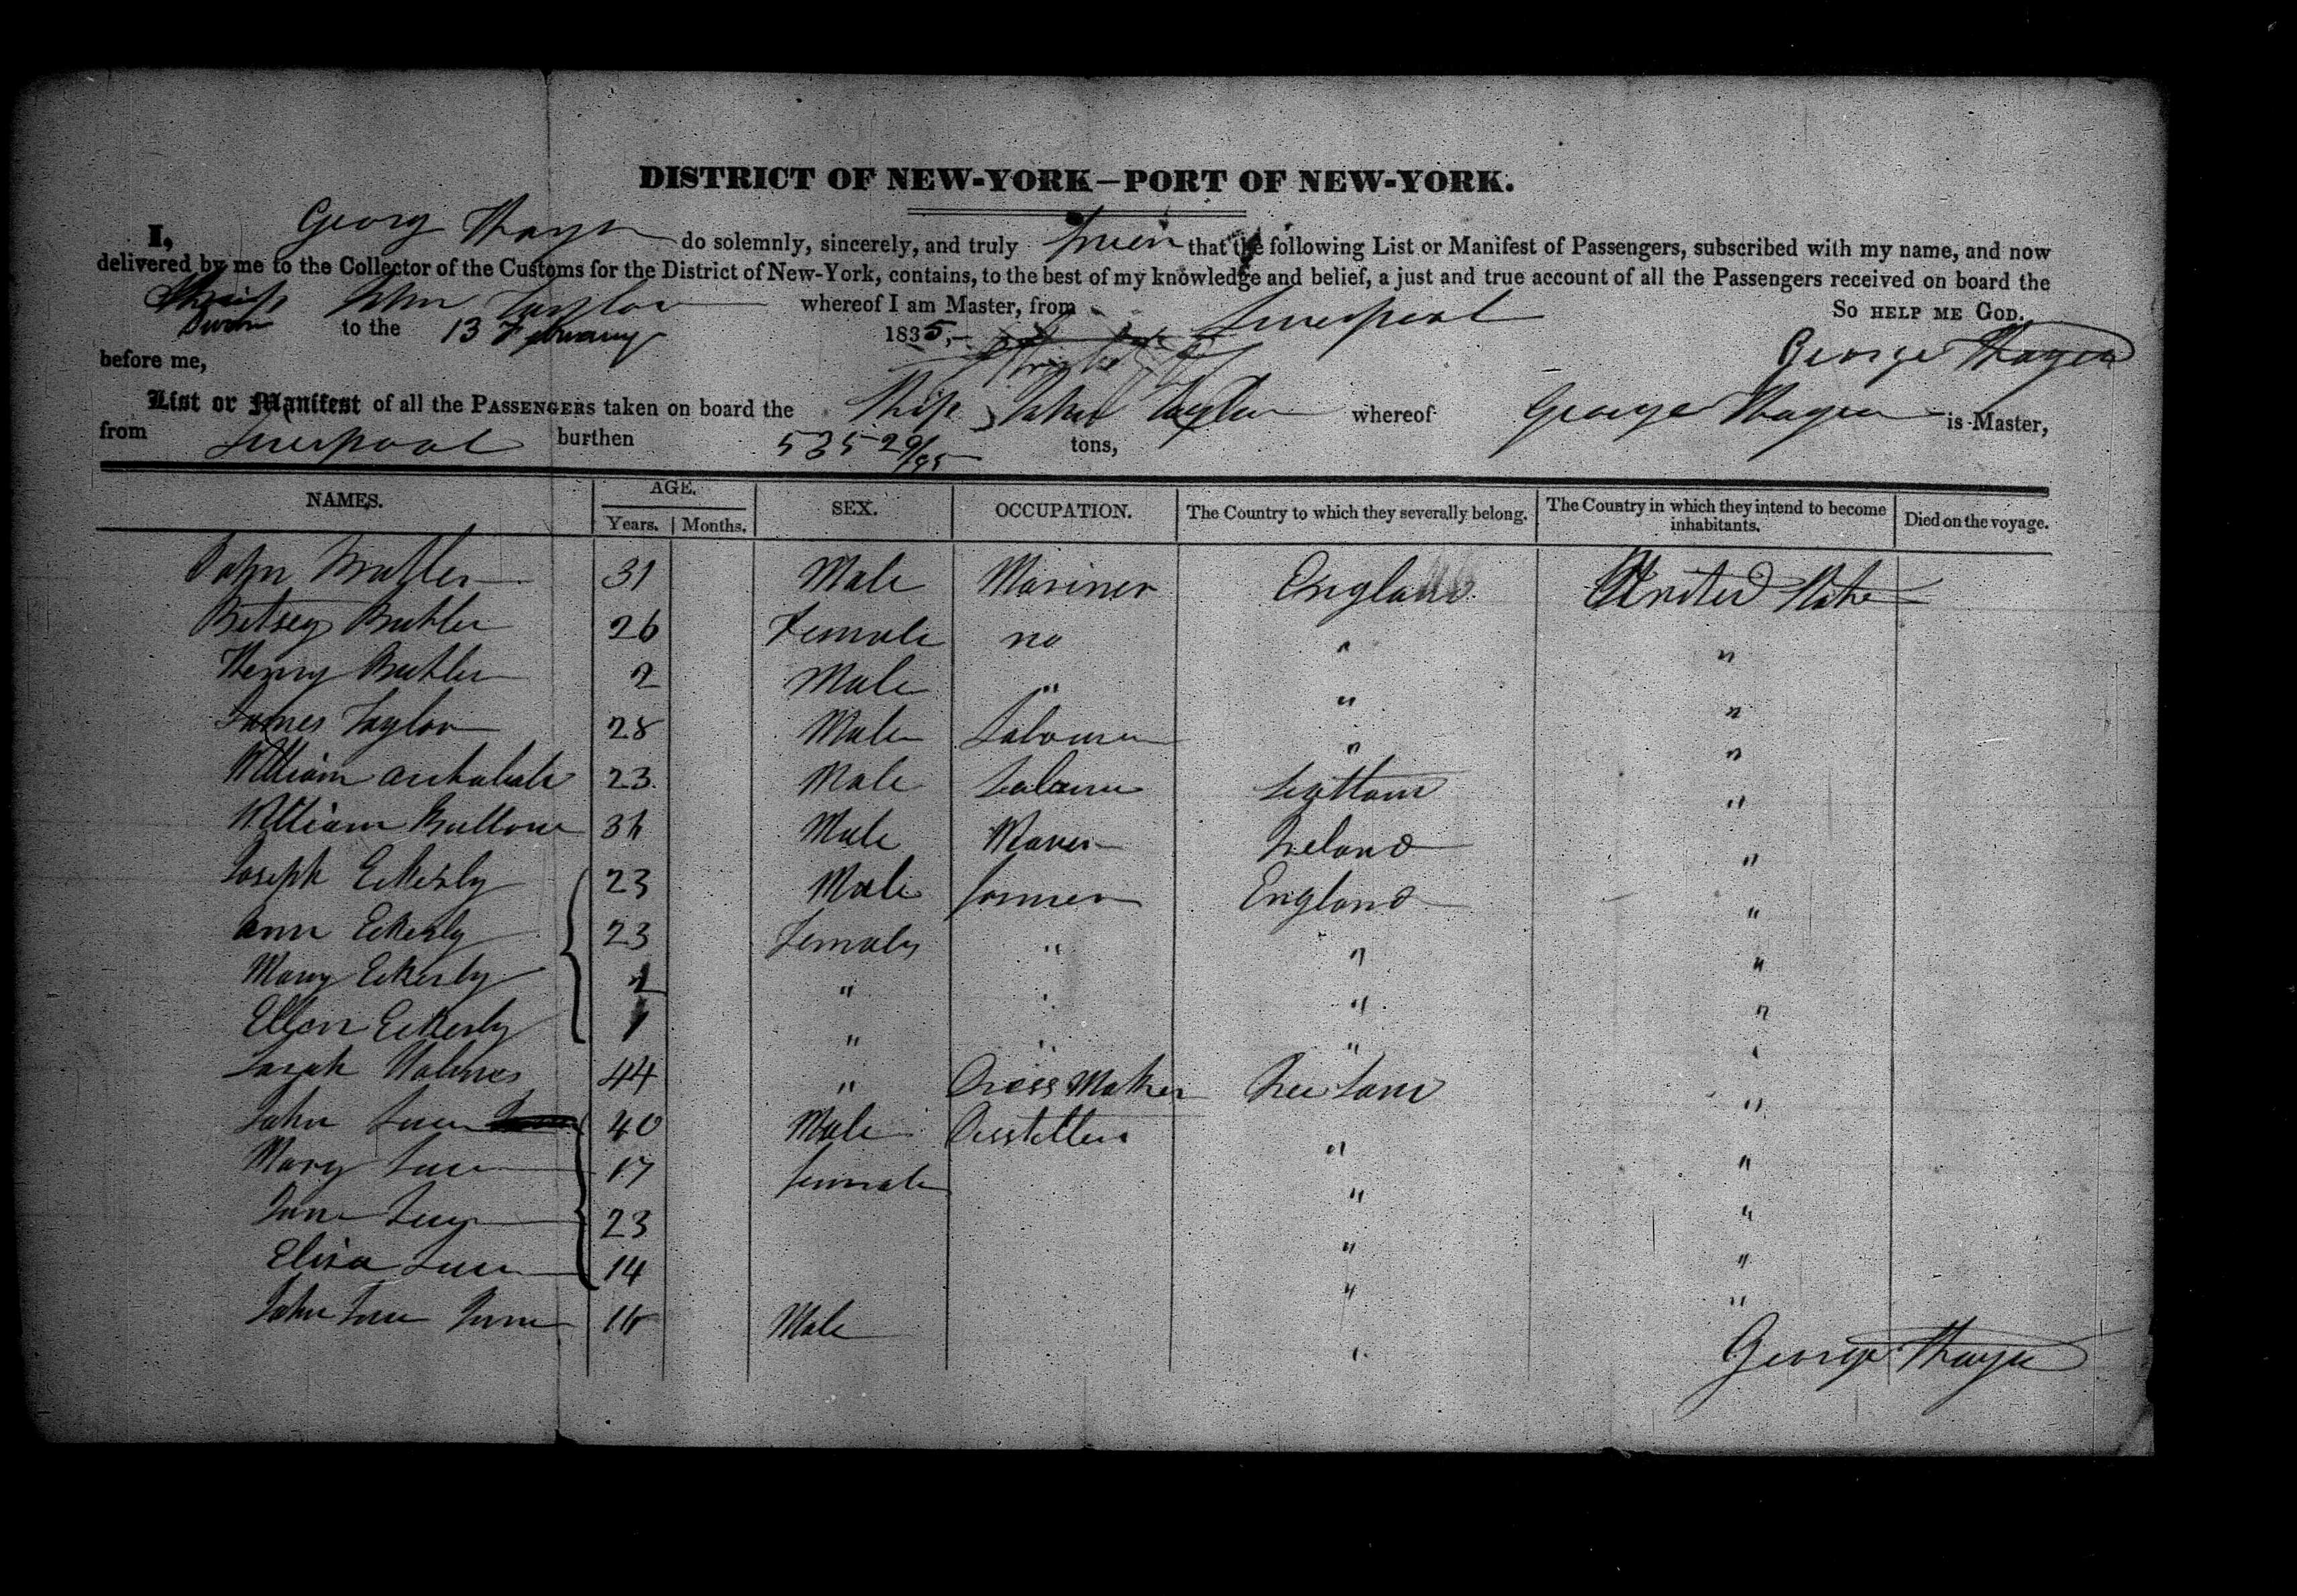 DISTRICT OF NEW-YORK—PORT OF NEW-YORK.
I, Georg Thayer do solemnly, sincerely, and truly that the following List or Manifest of Passengers, subscribed with my name, and now
delivered by me to the Collector of the Customs for the District of New-York, contains, to the best of my knowledge and belief, a just and true account of all the Passengers received on board the
Ship John Taylor whereof I am Master, from Liverpool So HELP ME GOD.
Sworn to the 13 February 1835,
before me, George Thayer
List or Manifest of all the PASSENGERS taken on board the Ship John Taylor whereof George Thayer is Master,
from Liverpool burthen 535 29/95 tons,
NAMES. AGE. Years. Months. SEX. OCCUPATION. The Country to which they severally belong. The Country in which they intend to become inhabitants. Died on the voyage.
John Buttler 31 Male Mariner England United State
Betsey Buttler 26 Female no " "
Henry Buttler 2 Male " " "
James Taylor 28 Male Labourer " "
William 23 Male Labourer "
William 36 Male Ireland "
Joseph Eckersly 23 Male farmer England "
Ann Eckersly 23 Female " " "
Mary Eckersly 2 " " " "
Ellen Eckersly 1 " " " "
Sarah Holmes 44 " Dress Maker "
John 40 Male " "
Mary 17 female " "
Jane 23 " "
Eliza 14 " "
John 16 Male "
George Thayer